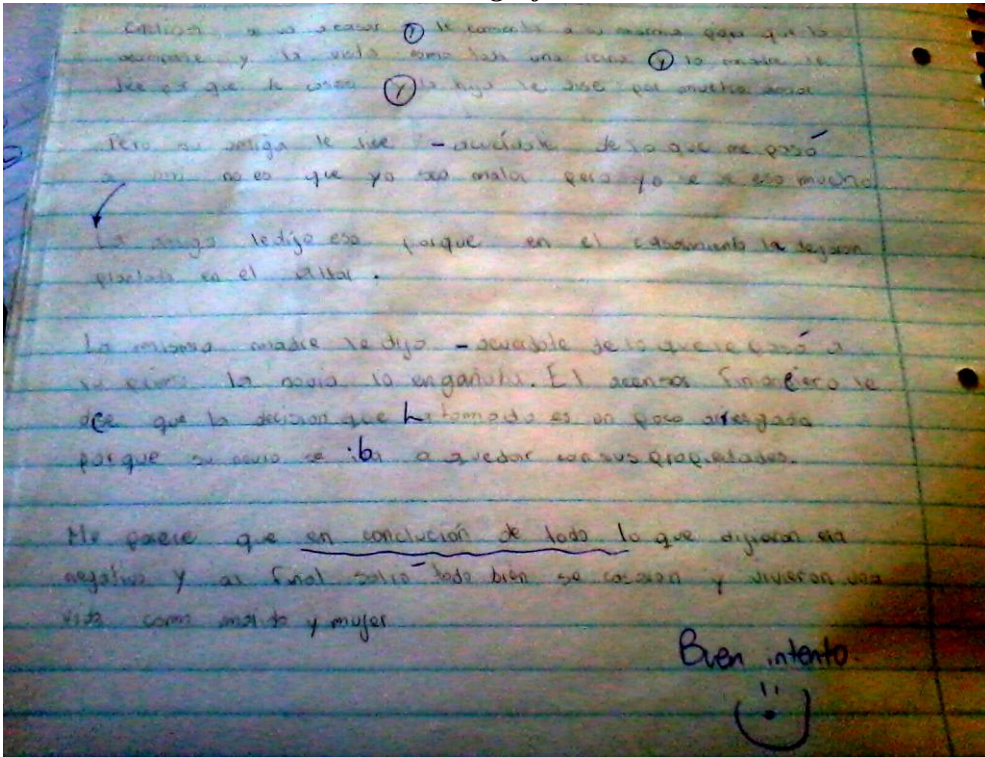 se va a casar y le comenta a su mamma para que la
acompañe y la vista como toda una reina y la madre le
dice por que te casas y la hija le dise por mucho amor
Pero su amiga le dice - acuérdate de lo que me pasó
a mi no es que yo sea mala pero yo se de eso mucho
La amiga le dijo eso porque en el casamiento la dejaron
plantada en el altar.
La misma madre le dijo - acuerdate de lo que le pasó a
tu primo la novia lo engañaba. El acensor financiero le
dce que la decision que ha tomado es un poco arresgada
porque su novio se iba a quedar con sus propiedades.
Me parece que en conclución de todo lo que dijieron era
negativo y al final salió todo bien se casaron y vivieron una
vida como marido y mujer
Buen intento.